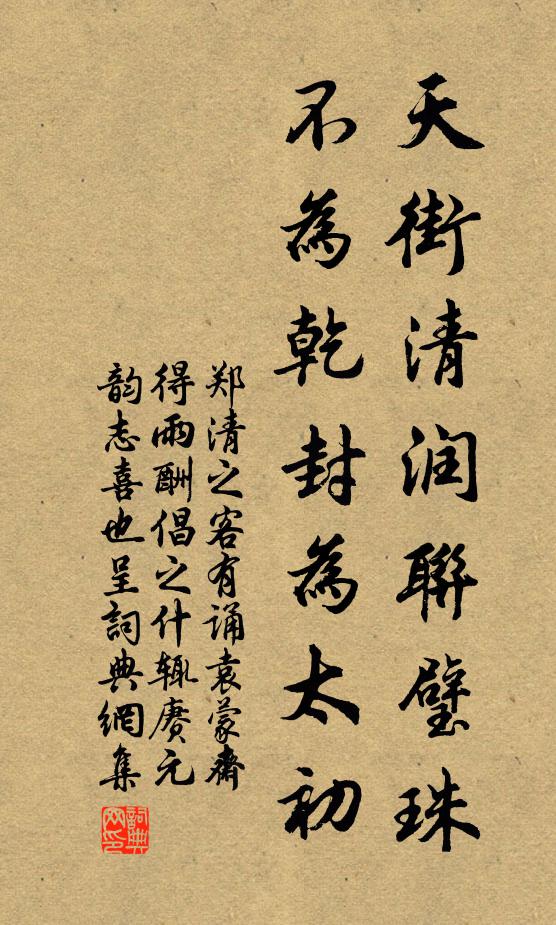 天街清润聯璧珠
不為乾封為太初
郑清之客有诵袁蒙齋
得雨酬倡之什辄赓元
韵志喜也呈詞典網集
詞典网印